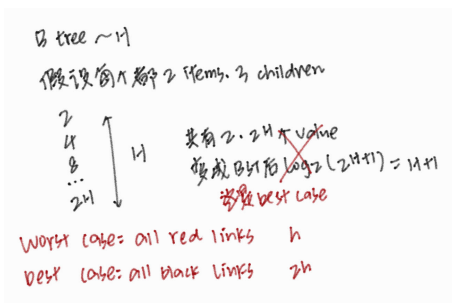 B tree ~ H
假设每个都 2 items. 3 children
2
4
8
...
2H
H
共有 2·2H个 value
变成BST后 log2(2H+1) = H+1
best case
worst case: all red links h
best case: all black links 2h